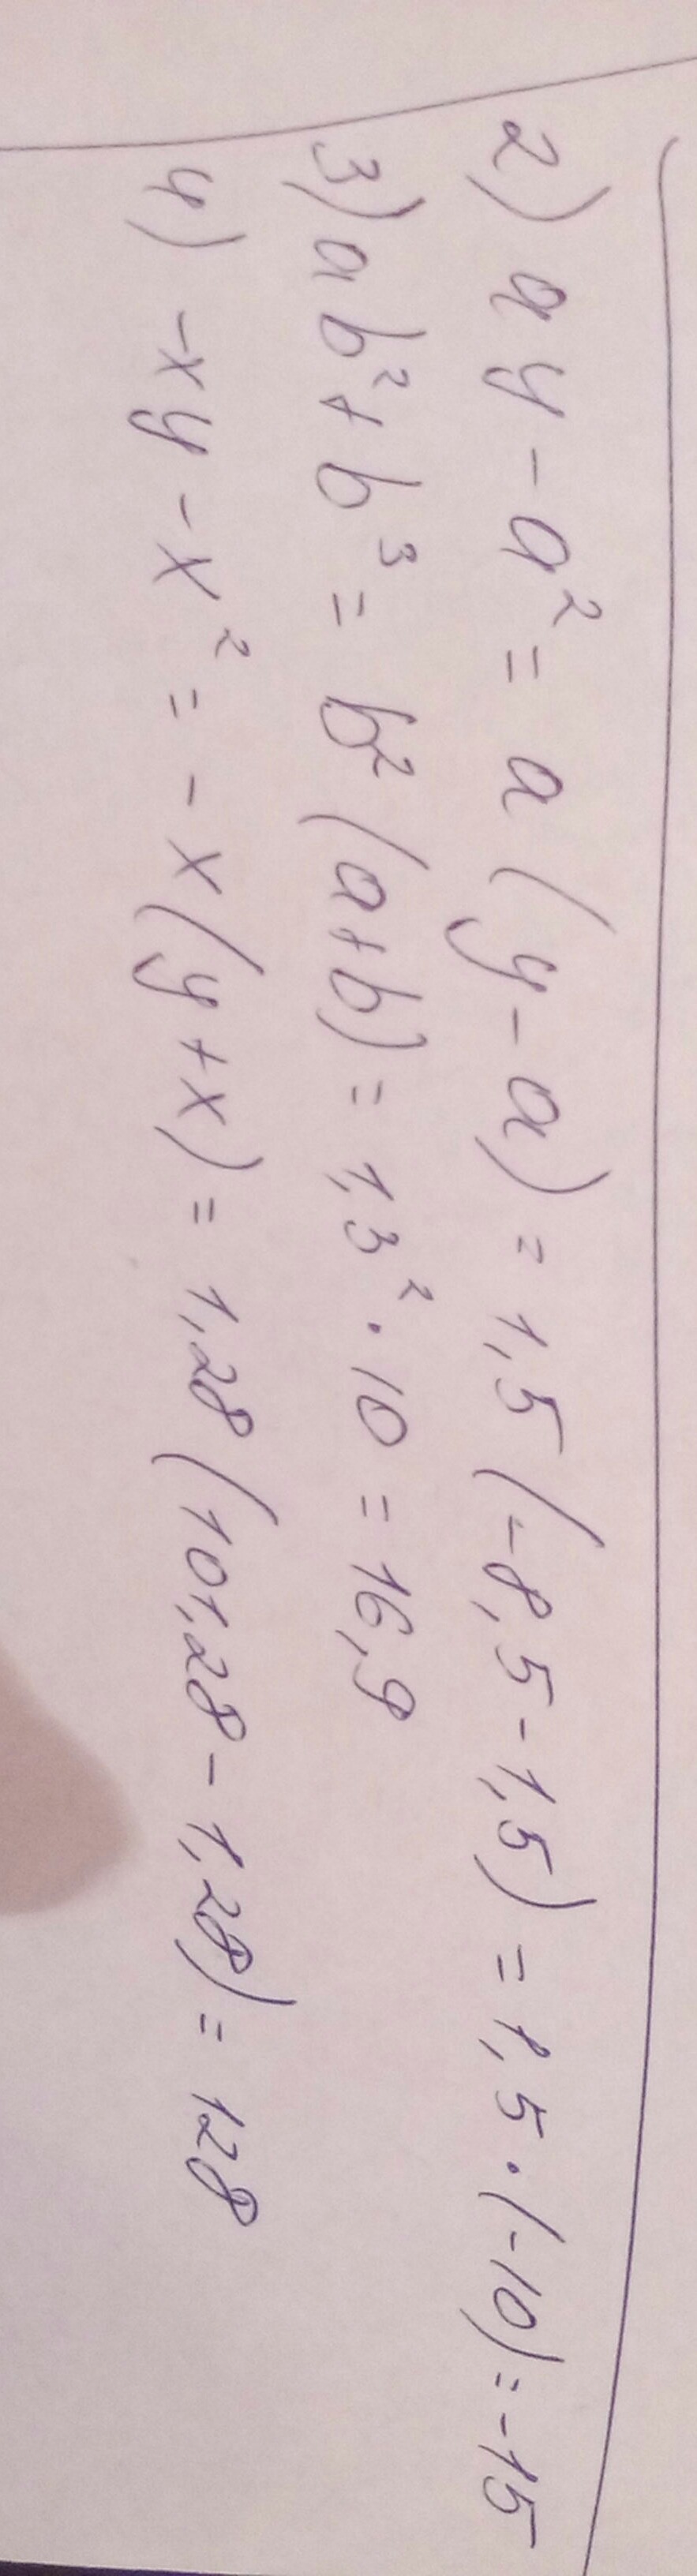 2) ay - a² = a(y - a) = 1,5(-8,5 - 1,5) = 1,5 · (-10) = -15
3) ab² + b³ = b²(a+b) = 1,3² · 10 = 16,9
4) -xy - x² = -x(y + x) = 1,28(101,28 - 1,28) = 128